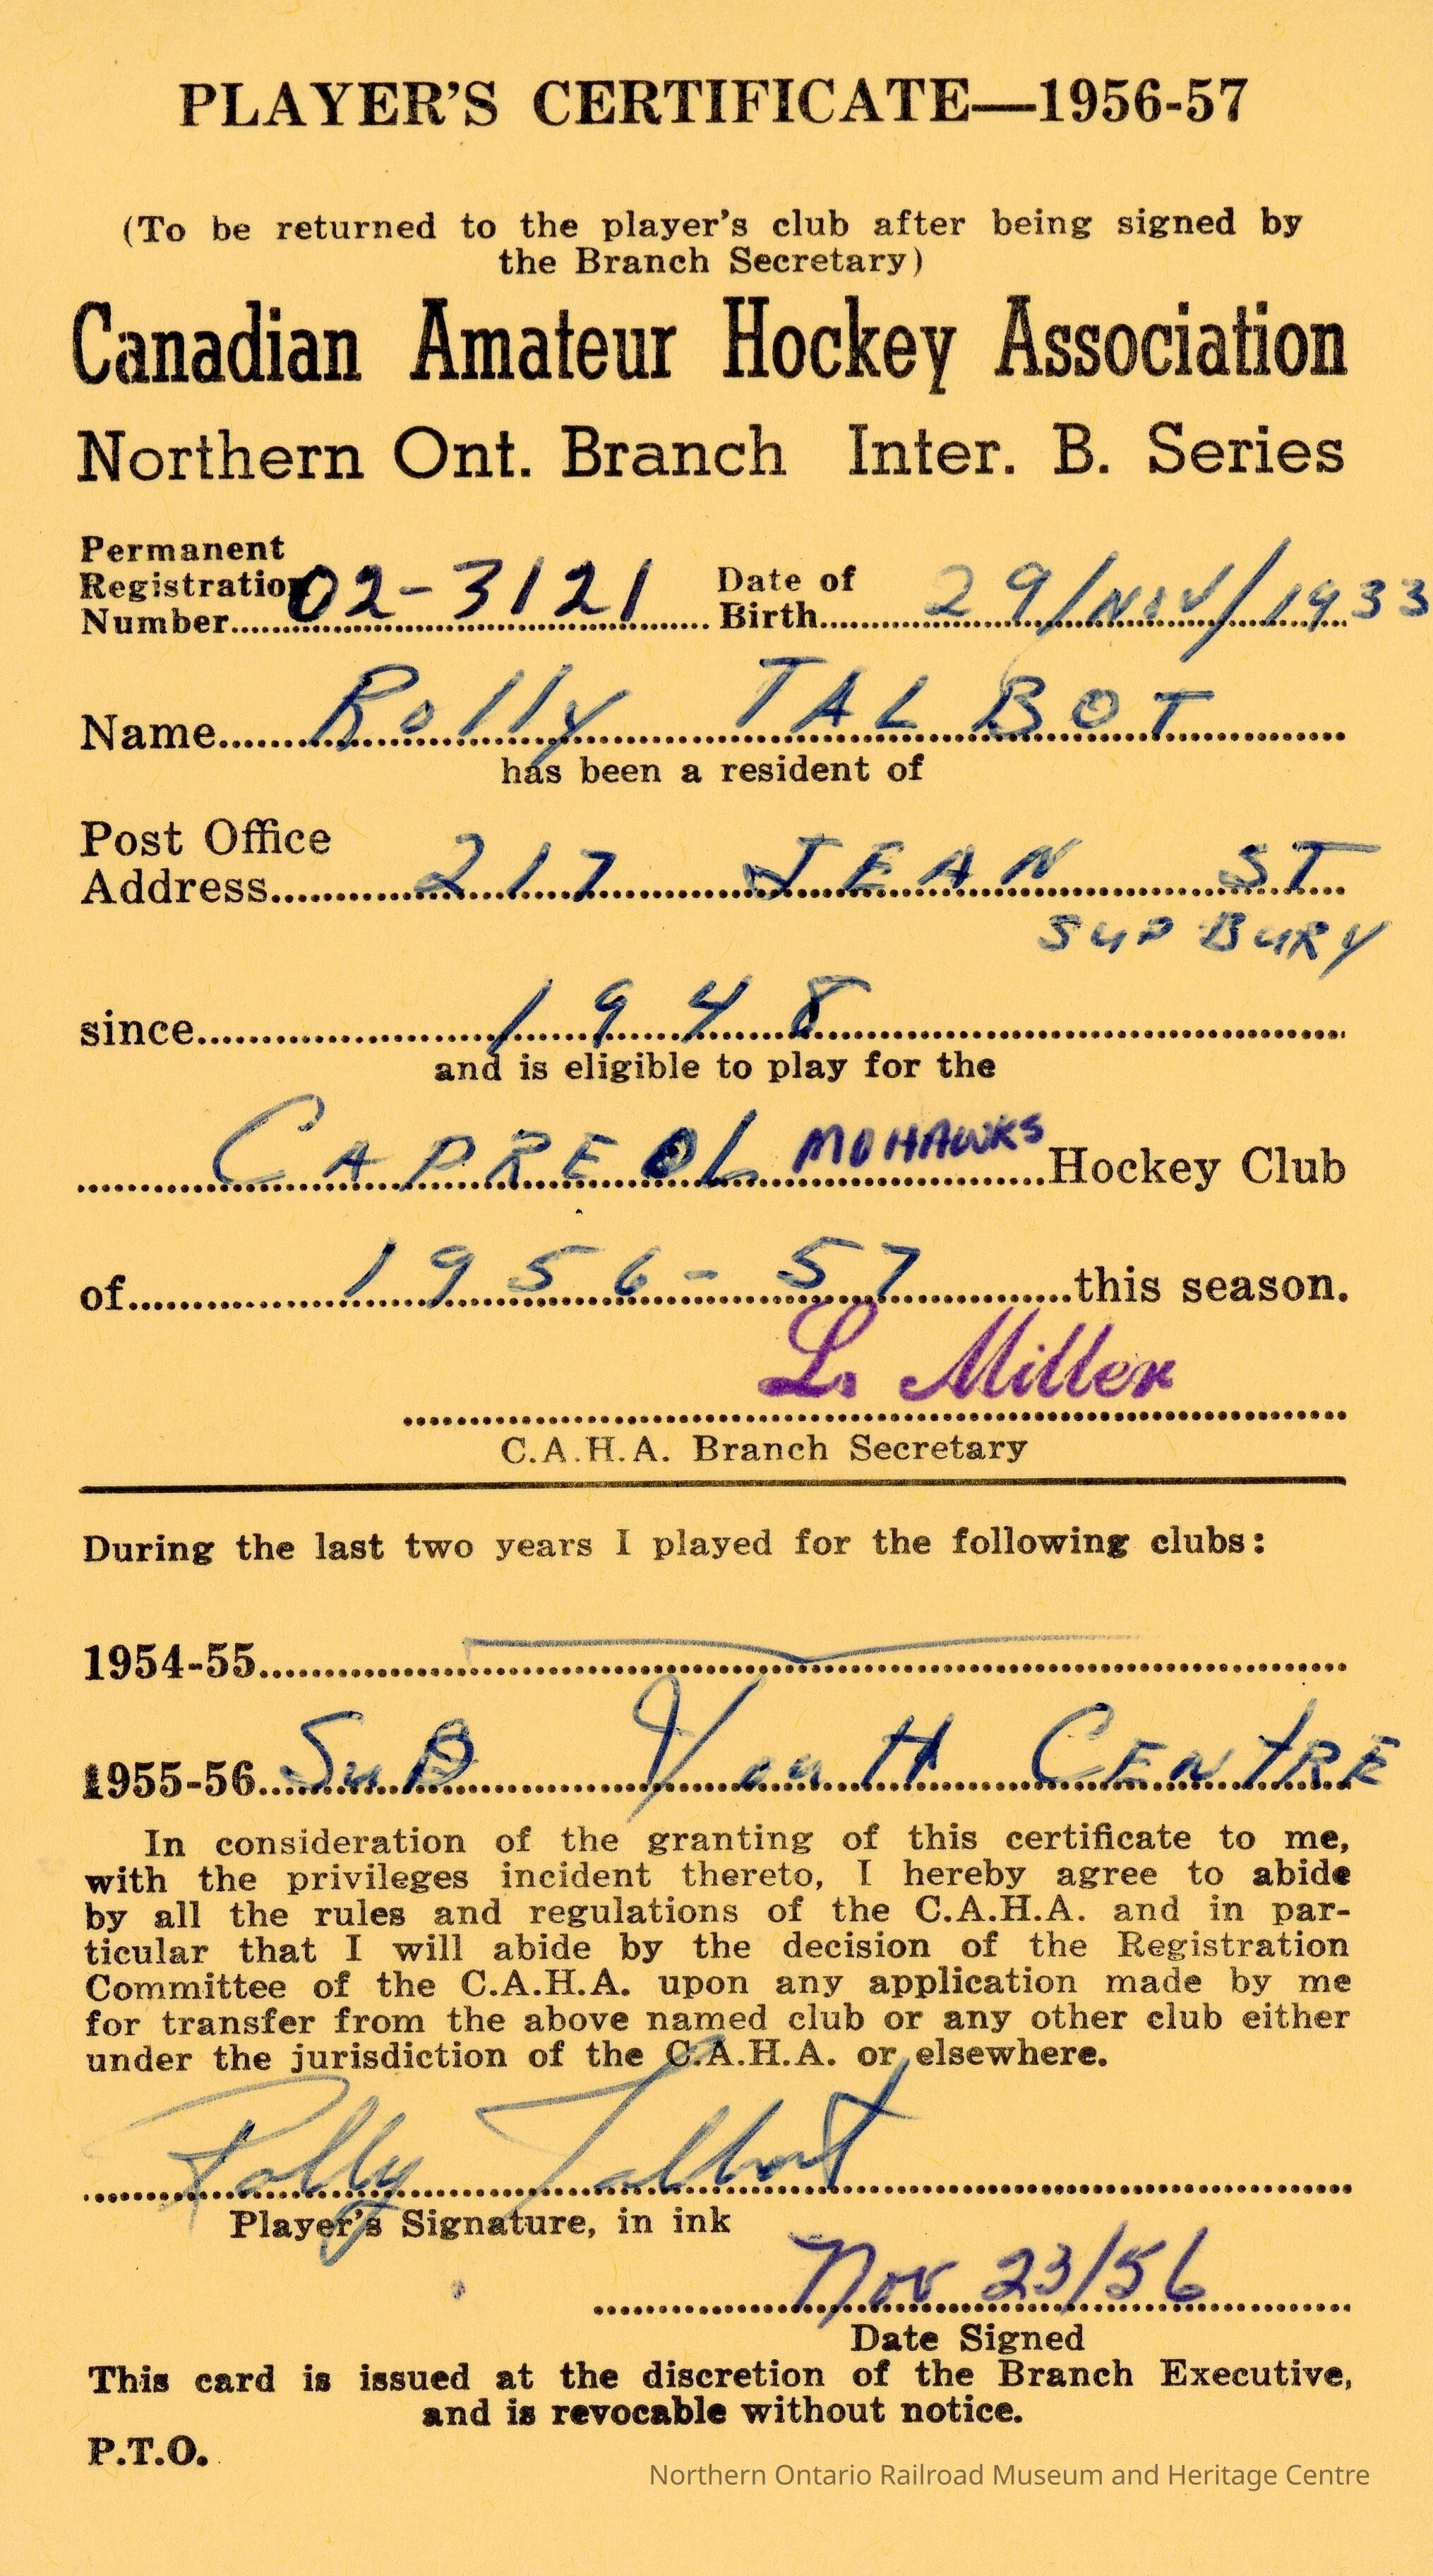 PLAYER'S CERTIFICATE—1956-57
(To be returned to the player's club after being signed by
the Branch Secretary)
Canadian Amateur Hockey Association
Northern Ont. Branch Inter. B. Series
Permanent
Registration
Number 02-3121 Date of
Birth 29/Nov/1933
Name Rolly TALBOT
has been a resident of
Post Office
Address 217 JEAN ST
SUDBURY
since 1948
and is eligible to play for the
CAPREOL MOHAWKS Hockey Club
of 1956-57 this season.
L. Miller
C.A.H.A. Branch Secretary
During the last two years I played for the following clubs:
1954-55
1955-56 SuD Youth CENTRE
In consideration of the granting of this certificate to me,
with the privileges incident thereto, I hereby agree to abide
by all the rules and regulations of the C.A.H.A. and in par-
ticular that I will abide by the decision of the Registration
Committee of the C.A.H.A. upon any application made by me
for transfer from the above named club or any other club either
under the jurisdiction of the C.A.H.A. or elsewhere.
Rolly Talbot
Player's Signature, in ink
Nov 23/56
Date Signed
This card is issued at the discretion of the Branch Executive,
and is revocable without notice.
P.T.O.
Northern Ontario Railroad Museum and Heritage Centre